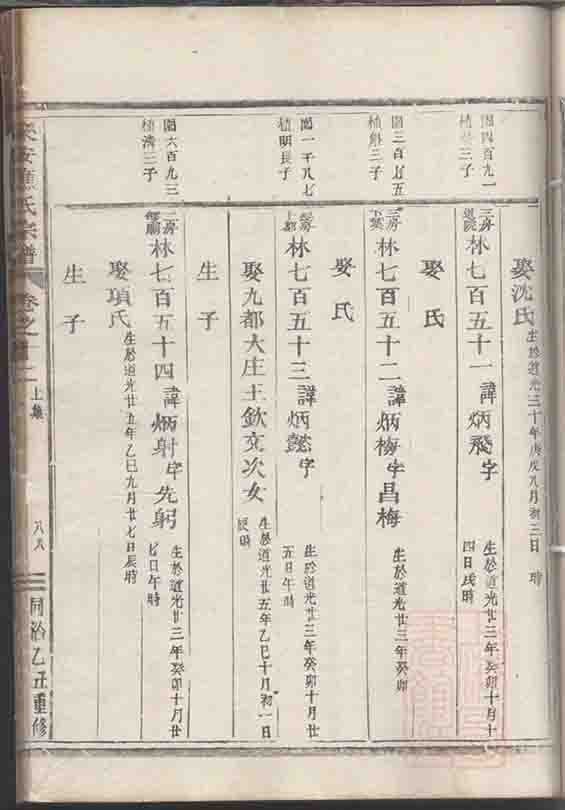 娶沈氏 生於道光三十年庚戌八月初三日 時
園四百九一
三子
三房
林七百五十一 諱炳飛 字
生於道光廿三年癸卯十月十
四日戌時
娶 氏
園三百七五
植魁三子
三房
林七百五十二 諱炳梅 字昌梅
生於道光廿三年癸卯
娶 氏
園一千八七
植明長子
林七百五十三 諱炳懿 字
生於道光廿三年癸卯十月廿
五日午時
娶九都大庄王欽文次女
生於道光廿五年乙巳十月初一日
辰時
生 子
園六百九三
植清三子
三房
林七百五十四 諱炳射 字先躬
生於道光廿三年癸卯十月廿
七日午時
娶項氏 生於道光廿五年乙巳九月廿七日辰時
生 子
樂安蔣氏宗譜 卷之 二 上集 八八 同治乙丑重修